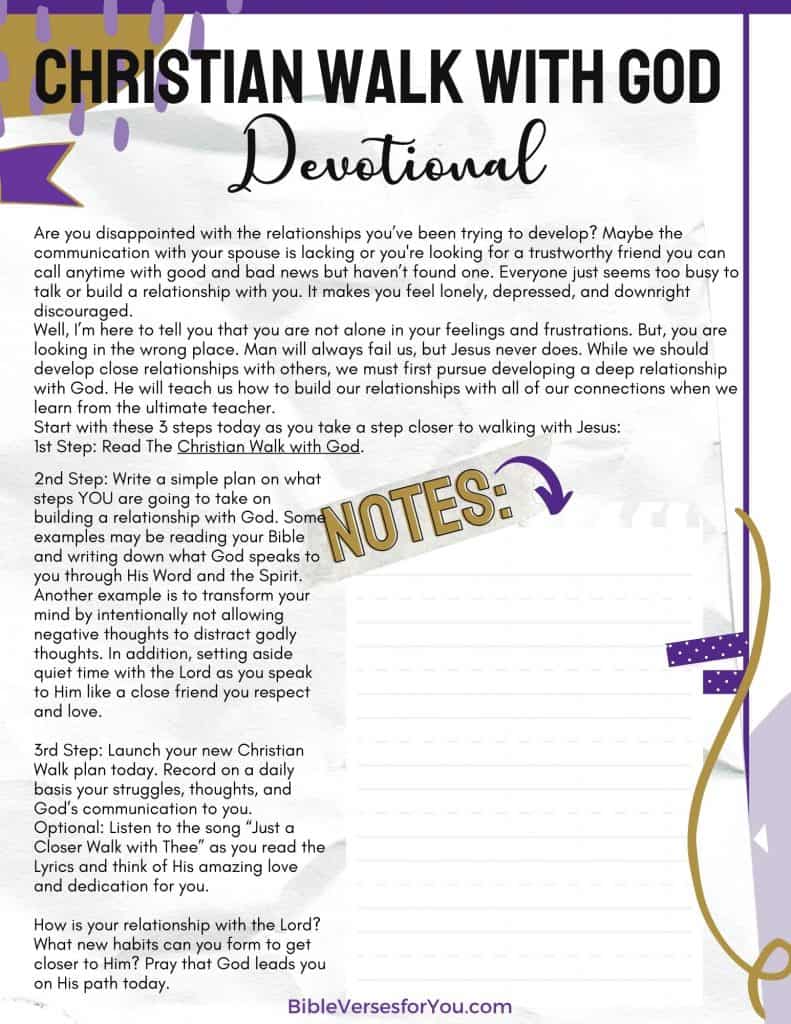 CHRISTIAN WALK WITH GOD
Devotional
Are you disappointed with the relationships you’ve been trying to develop? Maybe the
communication with your spouse is lacking or you're looking for a trustworthy friend you can
call anytime with good and bad news but haven’t found one. Everyone just seems too busy to
talk or build a relationship with you. It makes you feel lonely, depressed, and downright
discouraged.
Well, I’m here to tell you that you are not alone in your feelings and frustrations. But, you are
looking in the wrong place. Man will always fail us, but Jesus never does. While we should
develop close relationships with others, we must first pursue developing a deep relationship
with God. He will teach us how to build our relationships with all of our connections when we
learn from the ultimate teacher.
Start with these 3 steps today as you take a step closer to walking with Jesus:
1st Step: Read The Christian Walk with God.
2nd Step: Write a simple plan on what
steps YOU are going to take on
building a relationship with God. Some
examples may be reading your Bible
and writing down what God speaks to
you through His Word and the Spirit.
Another example is to transform your
mind by intentionally not allowing
negative thoughts to distract godly
thoughts. In addition, setting aside
quiet time with the Lord as you speak
to Him like a close friend you respect
and love.
3rd Step: Launch your new Christian
Walk plan today. Record on a daily
basis your struggles, thoughts, and
God’s communication to you.
Optional: Listen to the song “Just a
Closer Walk with Thee” as you read the
Lyrics and think of His amazing love
and dedication for you.
How is your relationship with the Lord?
What new habits can you form to get
closer to Him? Pray that God leads you
on His path today.
NOTES:
BibleVersesforYou.com